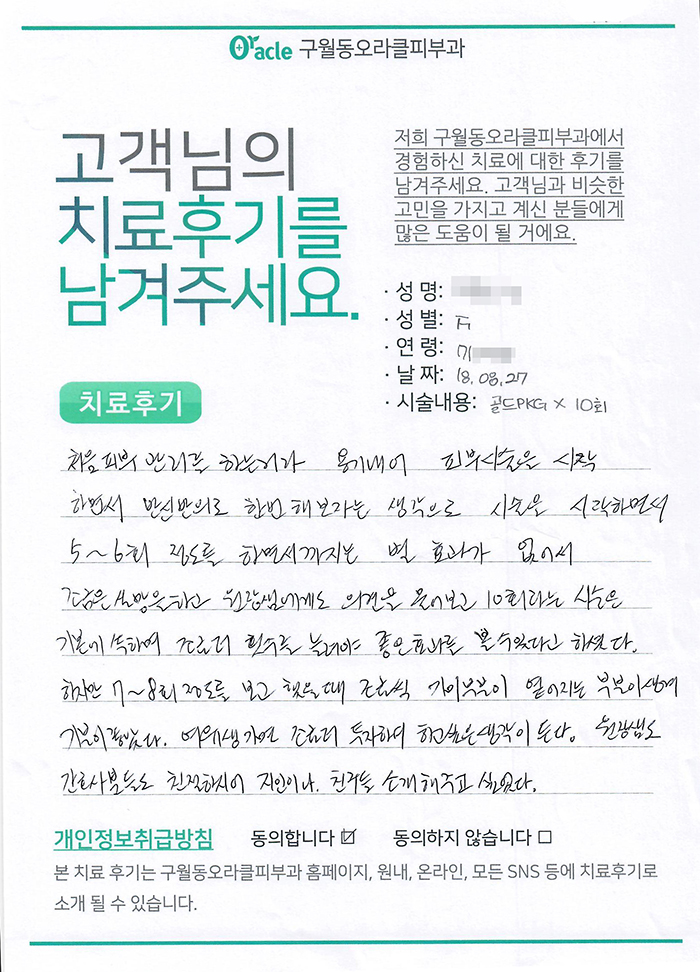 Oracle 구월동오라클피부과
고객님의
치료후기를
남겨주세요.
저희 구월동오라클피부과에서
경험하신 치료에 대한 후기를
남겨주세요. 고객님과 비슷한
고민을 가지고 계신 분들에게
많은 도움이 될 거에요.
· 성 명:
· 성 별: F
· 연 령: 기
· 날 짜: 18.08.27
· 시술내용: 골드PKG × 10회
치료후기
처음 피부 관리를 하는거라 용기내어 피부시술을 시작
하면서 반신반의로 한번 해보자는 생각으로 시술을 시작하면서
5~6회 정도를 하면서까지는 별 효과가 없어서
조금은 실망을 하고 원장쌤에게도 의견을 물어보고 10회라는 시술은
기본에 속하며 조금더 횟수를 늘려야 좋은효과를 볼수있다고 하셨다.
하지만 7~8회 정도를 보고 했을때 조금씩 기미부분이 옅어지는 부분이생겨
기분이좋았다. 여유생기면 조금더 투자하며 하고싶은생각이 든다. 원장쌤도
간호사분들도 친절하시어 지인이나. 친구들 소개해주고 싶었다.
개인정보취급방침 동의합니다 ☑ 동의하지 않습니다 □
본 치료 후기는 구월동오라클피부과 홈페이지, 원내, 온라인, 모든 SNS 등에 치료후기로
소개 될 수 있습니다.